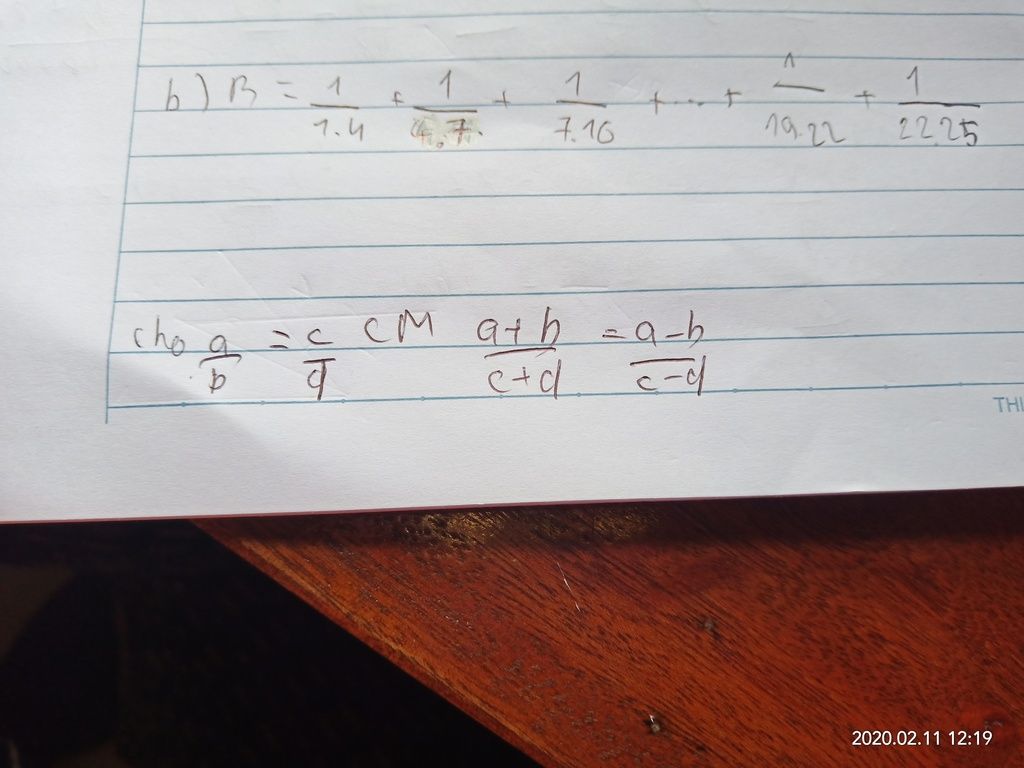 b) B = 1/1.4 + 1/4.7. + 1/7.10 + ... + 1/19.22 + 1/22.25
cho a/b = c/d CM a+b/c+d = a-b/c-d
THI
2020.02.11 12:19